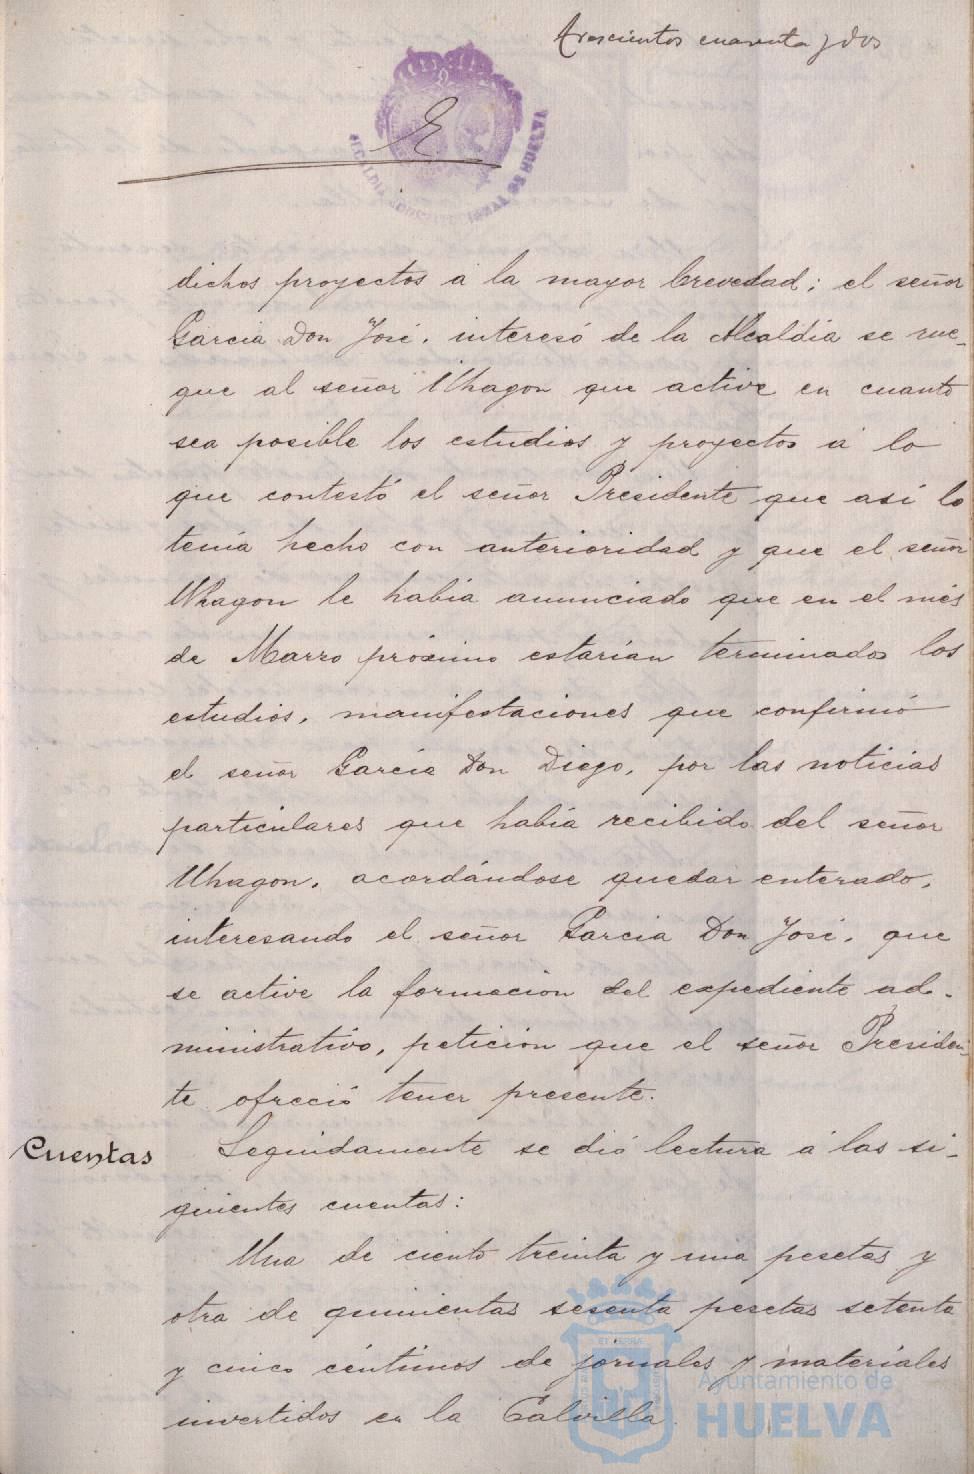 Trescientos cuarenta y dos
E
ALCALDIA CONSTITUCIONAL DE HUELVA
dichos proyectos á la mayor brevedad; el señor
Garcia Don José, interesó de la Alcaldía se rue-
gue al señor Uhagon que active en cuanto
sea posible los estudios y proyectos á lo
que contestó el señor Presidente que así lo
tenía hecho con anterioridad y que el señor
Uhagon le había anunciado que en el més
de Marzo próximo estarían terminados los
estudios, manifestaciones que confirmó
el señor García Don Diego, por las noticias
particulares que había recibido del señor
Uhagon, acordándose quedar enterado,
interesando el señor Garcia Don José, que
se active la formacion del expediente ad-
ministrativo, peticion que el señor Presiden-
te ofreció tener presente.
Cuentas
Seguidamente se dió lectura á las si-
guientes cuentas:
Una de ciento treinta y una pesetas y
otra de quinientas sesenta pesetas setenta
y cinco céntimos de jornales y materiales
invertidos en la Calvilla.
Ayuntamiento de
HUELVA